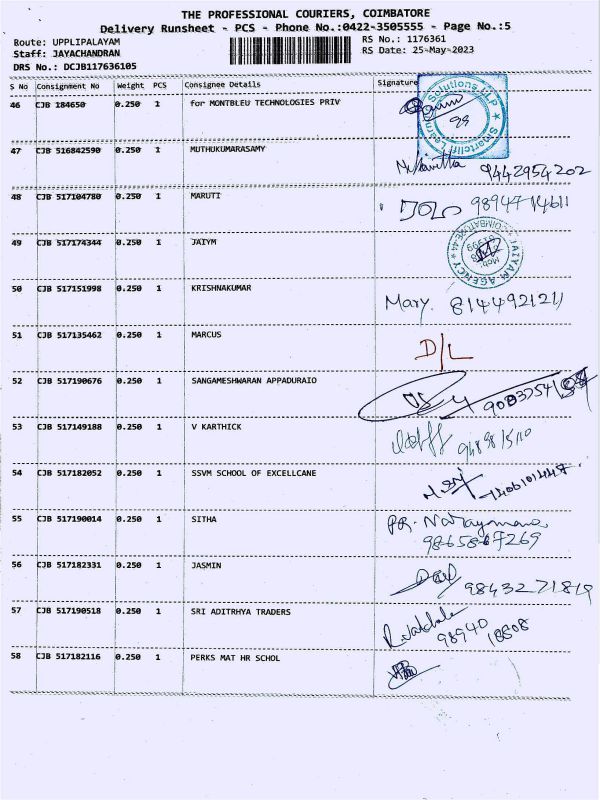 THE PROFESSIONAL COURIERS, COIMBATORE
Delivery Runsheet - PCS - Phone No.:0422-3505555 - Page No.:5
Route: UPPLIPALAYAM
Staff: JAYACHANDRAN
DRS No.: DCJB117636105
RS No.: 1176361
RS Date: 25-May-2023
S No Consignment No Weight PCS Consignee Details Signature
46 CJB 184650 0.250 1 for MONTBLEU TECHNOLOGIES PRIV
Solutions LLP ★ Smartcliff Learning
47 CJB 516842590 0.250 1 MUTHUKUMARASAMY 9442954202
48 CJB 517104780 0.250 1 MARUTI 9894714611
49 CJB 517174344 0.250 1 JAIYM
JAIYAM AGENCY ★ COIMBATORE-44 ★
Mob:
50 CJB 517151998 0.250 1 KRISHNAKUMAR Mary. 8144921211
51 CJB 517135462 0.250 1 MARCUS D/L
52 CJB 517190676 0.250 1 SANGAMESHWARAN APPADURAIO
53 CJB 517149188 0.250 1 V KARTHICK
54 CJB 517182052 0.250 1 SSVM SCHOOL OF EXCELLCANE
55 CJB 517190014 0.250 1 SITHA
9865867269
56 CJB 517182331 0.250 1 JASMIN 9843271819
57 CJB 517190518 0.250 1 SRI ADITRHYA TRADERS
98940 18808
58 CJB 517182116 0.250 1 PERKS MAT HR SCHOL